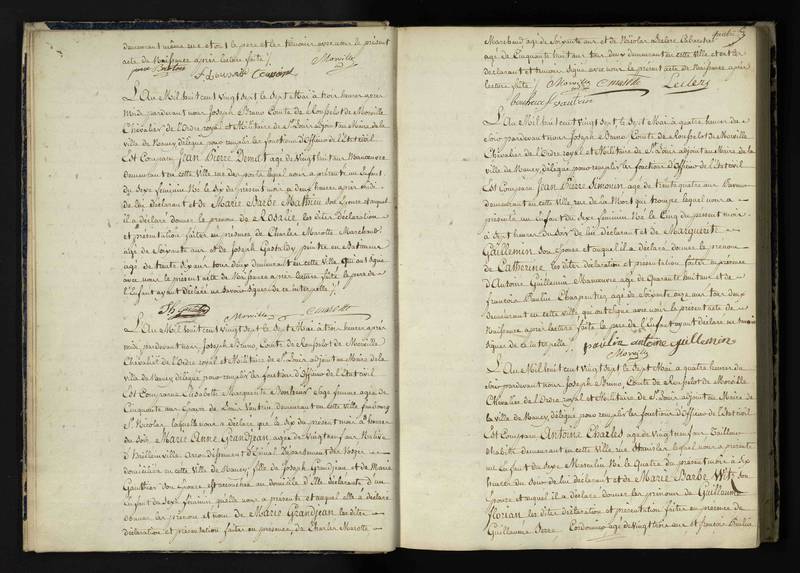 demeurant même rue et ont le père et les témoins avec nous le présent
acte de Naissance après lecture faite /.
Morville
L'An Mil huit cent vingt sept le Sept Mai à trois heures après
midi pardevant nous Joseph Bruno Comte de Rousselot de Morville
Chevalier de l'Ordre royal et Militaire de St Louis adjoint au Maire de la
ville de Nancy délégué pour remplir les fonctions d'officier de l'état civil
Est Comparu Jean Pierre agé de Vingt huit ans Manœuvre
demeurant en cette Ville rue lequel nous a présenté un Enfant
du Sexe féminin Né le Six du présent mois à deux heures après midi
de lui déclarant et de Marie Barbe Mathieu son Epouse et auquel
il a déclaré donner le prénom de Rosalie les dites déclaration
et présentation faites en présence de Charles Marotte Marchand
agé de Soixante ans et de Joseph peintre en batimens
agé de trente Six ans tous deux demeurant en cette Ville, Qui ont Signé
avec nous le présent acte de Naissance après lecture faite le père de
l'Enfant ayant déclaré ne savoir Signer de ce interpellé /.
Morville CMarotte
L'An Mil huit cent Vingt Sept le Sept Mai à trois heures après
midi, pardevant nous Joseph Bruno, Comte de Rousselot de Morville
Chevalier de l'Ordre royal et Militaire de St Louis adjoint au Maire de la
ville de Nancy délégué pour remplir les fonctions d'officier de l'état civil
Est Comparue Elisabette Marguerite Sage femme agée de
Cinquante ans Epouse de Louis Vautrin demeurant en cette Ville faubourg
St Nicolas laquelle nous a déclaré que le Six du présent mois à
du soir Marie Anne Grandjean agée de Vingt neuf ans Native
d' arrondissement d'Epinal Département des Vosges
domiciliée en cette Ville de Nancy, fille de Joseph Grandjean et de Marie
Gauthier son Epouse est accouchée au domicile d'Elle déclarante d'un
Enfant du Sexe féminin qu'elle nous a présenté et auquel elle a déclaré
donner les prénom et nom de Marie Grandjean les dites
déclaration et présentation faites en présence, de Charles Marotte
Marchand agé de Soixante ans et de Nicolas Leclerc Cabaretier
agé de Cinquante huit ans tous deux demeurant en cette ville et ont les
déclarant et témoins Signé avec nous le présent acte de Naissance après
lecture faite / Morville CMarotte Leclerc
f vautrin
L'An Mil huit cent Vingt Sept, le Sept Mai à quatre heures du
soir pardevant nous, Joseph Bruno Comte de Rousselot de Morville
Chevalier de l'Ordre royal et Militaire de St Louis adjoint au Maire de la
ville de Nancy, délégué pour remplir les fonctions d'Officier de l'Etat civil
Est Comparu Jean Pierre Simonin agé de trente quatre ans
demeurant en cette Ville, rue de lequel nous a
présenté un Enfant du Sexe féminin Né le Cinq du présent mois
à Sept heures du Soir de lui déclarant et de Marguerite
Guillemin son Epouse et auquel il a déclaré donner le prénom
de Catherine les dites déclaration et présentation faites en présence
d'Antoine Guillemin Manœuvre agé de Quarante huit ans et de
françois Paulin Charpentier agé de Soixante onze ans tous deux
demeurant en cette ville qui ont Signé avec nous le présent acte de
Naissance après lecture faite le père de l'Enfant ayant déclaré ne savoir
signer de ce interpellé / paulin antoine guillemin
Morville
L'An Mil huit cent Vingt Sept le Sept Mai à quatre heures du
soir pardevant nous Joseph Bruno, Comte de Rousselot de Morville
Chevalier de l'Ordre royal et Militaire de St Louis adjoint au Maire de
la ville de Nancy, délégué pour remplir les fonctions d'Officier de l'état civil
Est Comparu Antoine Charles agé de Vingt neuf ans Tailleur
d'habits demeurant en cette Ville rue Stanislas lequel nous a présenté
un Enfant du Sexe Masculin Né le Quatre du présent mois à Six
heures du soir de lui déclarant et de Marie Barbe son
Epouse et auquel il a déclaré donner les prénoms de Guillaume
florian les dites déclaration et présentation faites en présence de
Guillaume Cordonnier agé de Vingt trois ans et françois Paulin